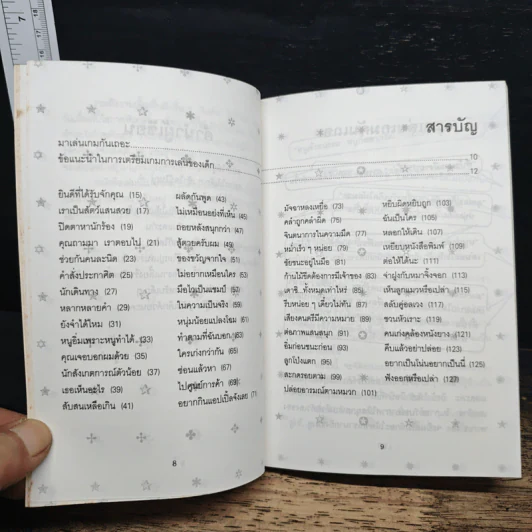 สารบัญ
มาเล่นเกมกันเถอะ 10
ข้อแนะนำในการเตรียมเกมการเล่นของเด็ก 12
ยินดีที่ได้รับจักคุณ (15)
เราเป็นสัตว์แสนสวย (17)
ปิดตาหานักร้อง (19)
คุณถามมา เราตอบไป (21)
ช่วยกันคนละนิด (23)
คำสั่งประกาศิต (25)
นักเดินทาง (27)
หลากหลายคำ (29)
ยังจำได้ไหม (31)
หนูยิ้มเพราะหนูทำได้ (33)
คุณเจอบอกผมด้วย (35)
นักสังเกตการณ์ตัวน้อย (37)
เธอเห็นอะไร (39)
สับสนเหลือเกิน (41)
ผลัดกันพูด (43)
ไม่เหมือนอย่างที่เห็น (45)
ถอยหลังสนุกกว่า (47)
สู้ตายครับผม (49)
ของขวัญจากใจ (51)
ไม่อยากเหมือนใคร (53)
มือไวเป็นแชมป์ (55)
ในความเป็นจริง (59)
หนุ่มน้อยแปลงโฉม (61)
ทำตามที่ฉันบอก (63)
ใครเก่งกว่ากัน (65)
ซ่อนแล้วหา (67)
ไปศูนย์การค้า (69)
อยากกินแอปเปิ้ลจังเลย (71)
8
มัจฉาหลงเหยื่อ (73)
คลำถูกคลำผิด (75)
จินตนาการในความมืด (77)
หม่ำเร็ว ๆ หน่อย (79)
ชัยชนะอยู่ในมือ (81)
ก้านไม้ขีดต้องการมีเจ้าของ (83)
เดาซิ..ทั้งหมดเท่าไหร่ (85)
รีบหน่อย ๆ เดี๋ยวไม่ทัน (87)
เสียงดนตรีมีความหมาย (89)
ต่อภาพแสนสนุก (91)
อิ่มก่อนชนะก่อน (93)
ลูกโป่งแตก (95)
สะกดรอยตาม (99)
ปล่อยอารมณ์ตามหมวก (101)
หยิบผิดหยิบถูก (103)
ฉันเป็นใคร (105)
หลอกให้เดิน (107)
เหยียบหนังสือพิมพ์ (109)
ต่อให้ได้นะ (111)
จ่าฝูงกับหมาจิ้งจอก (113)
เห็นลูกแมวหรือเปล่า (115)
สลับคู่อลเวง (117)
ชวนหัวเราะ (119)
คนเก่งคล้องหนังยาง (121)
คีบแล้วอย่าปล่อย (123)
อยากเป็นโน่นอยากเป็นนี่ (125)
ฟังออกหรือเปล่า (127)
9